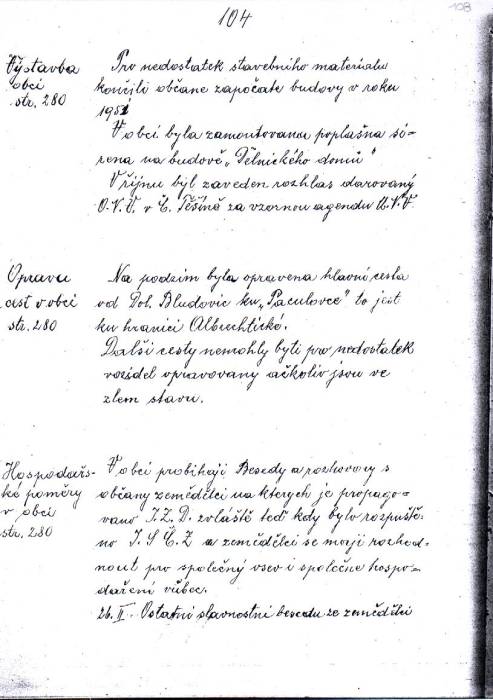 104
108
Výstavba
obcí
str. 280
Pro nedostatek stavebního materialu
končili občane započate budovy v roku
1951
V obci byla zamontovana poplašna si-
rena na budově „Dělnického domů"
V říjnu byl zaveden rozhlas darovaný
O.N.V. v Č. Těšíně za vzornou agendu M.N.V.
Oprava
cest v obci
str. 280
Na podzim byla opravena hlavní cesta
od Dol. Bludovic ku „Paculovce" to jest
ku hranici Albrechtické.
Další cesty nemohly byti pro nedostatek
vozidel opravovany ačkoliv jsou ve
zlem stavu.
Hospodařs-
ké poměry
v obci
str. 280
V obci probíhají Besedy a rozhovory s
občany zemědělci na kterych je propago-
vano J.Z.D. zvláště teď kdy bylo rozpuště-
no J.S.C.Z a zemědělci se mají rozhod-
nout pro společný osev i společne hospo-
daření vůbec.
26.II. Ostatní slavnostní besedu ze zemědělci